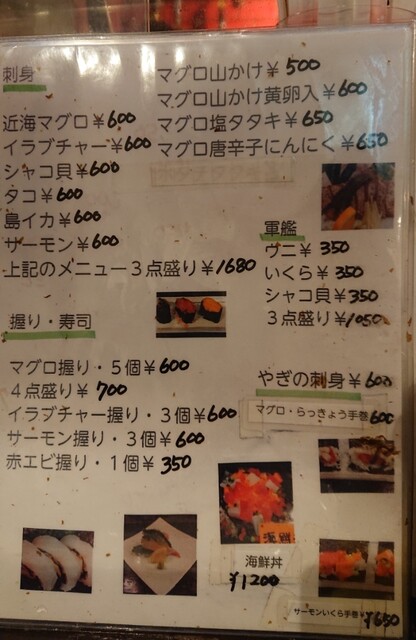 刺身
近海マグロ¥600
イラブチャー¥600
シャコ貝¥600
タコ¥600
島イカ¥600
サーモン¥600
上記のメニュー3点盛り¥1680
マグロ山かけ¥500
マグロ山かけ黄卵入¥600
マグロ塩タタキ¥650
マグロ唐辛子にんにく¥650
軍艦
ウニ¥350
いくら¥350
シャコ貝¥350
3点盛り¥1050
握り・寿司
マグロ握り・5個¥600
4点盛り¥700
イラブチャー握り・3個¥600
サーモン握り・3個¥600
赤エビ握り・1個¥350
やぎの刺身¥600
マグロ・らっきょう手巻600
海鮮丼
¥1200
サーモンいくら手巻¥650